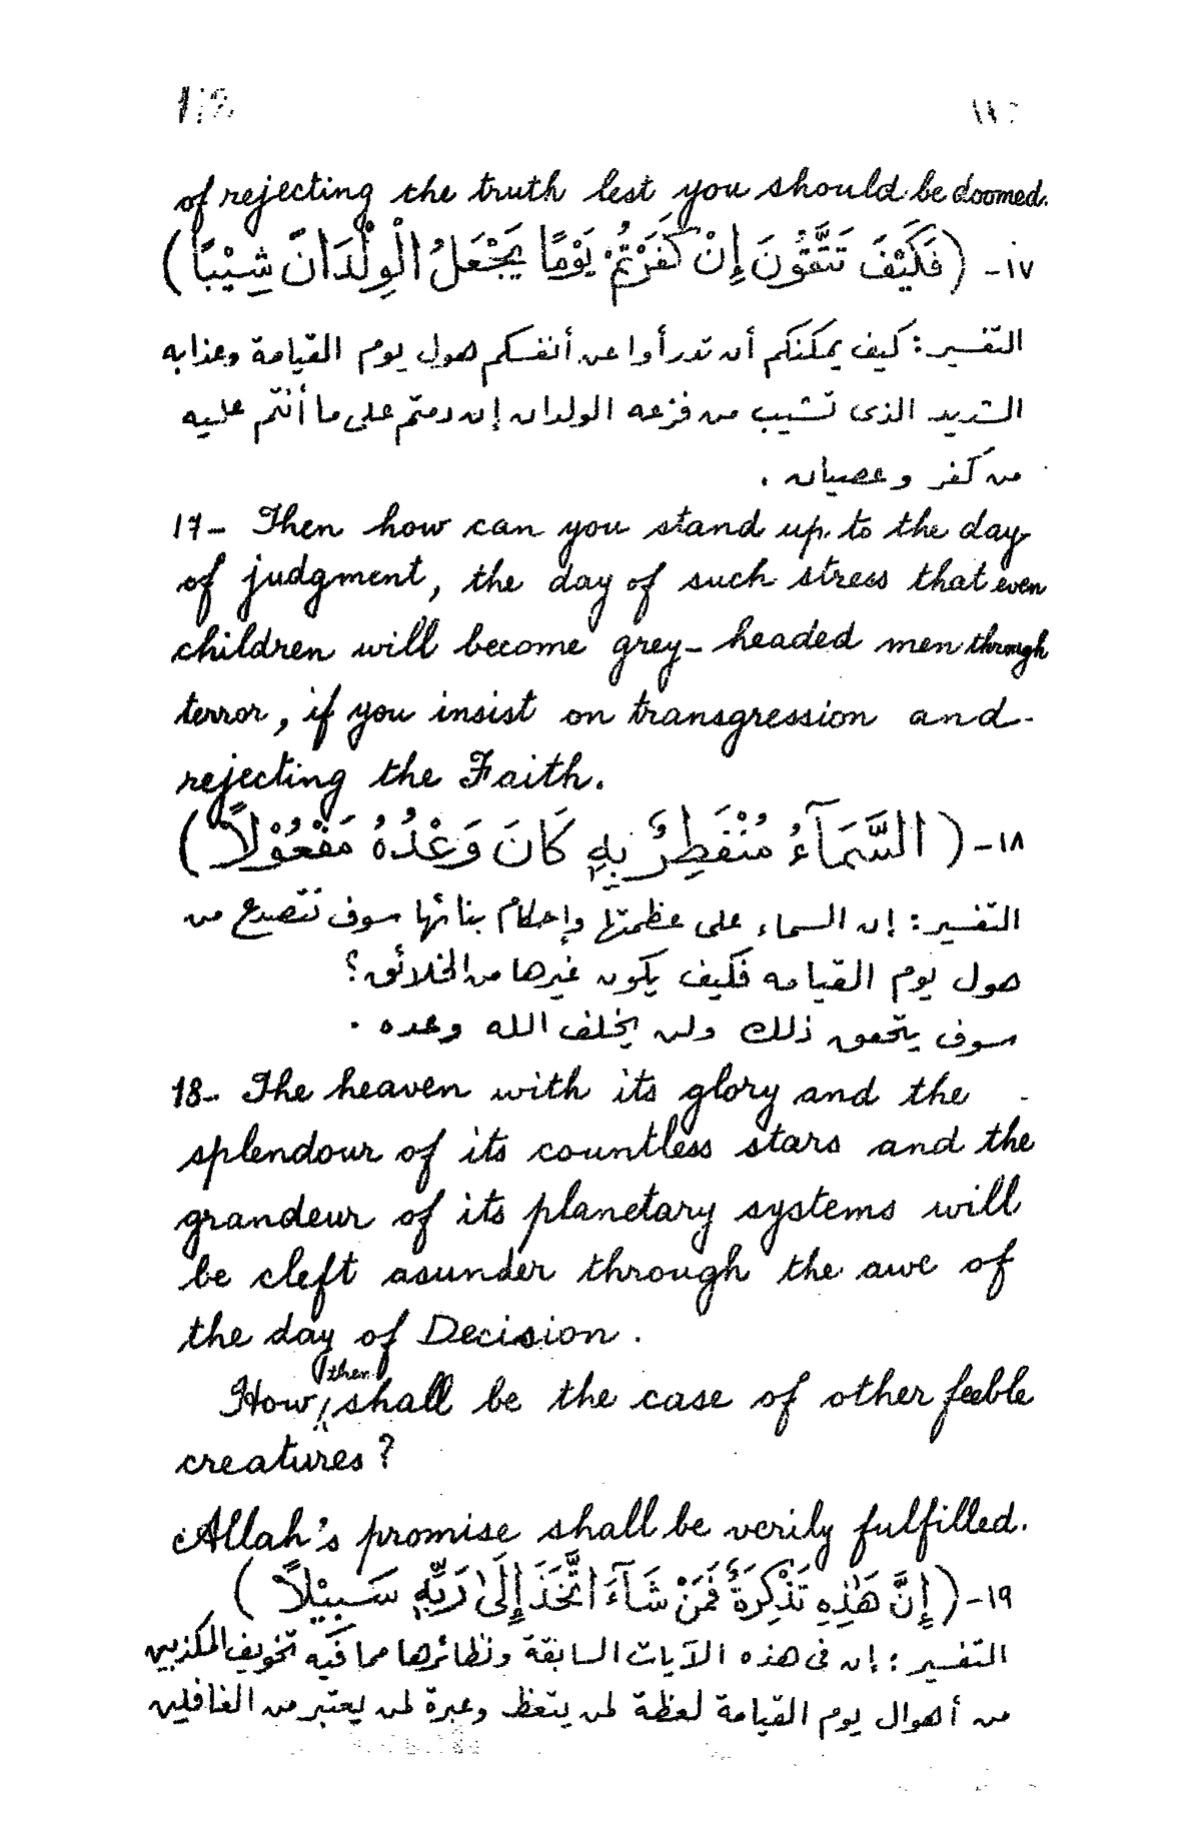 of rejecting the truth lest you should be doomed.
١٧- (فَكَيْفَ تَتَّقُونَ إِنْ كَفَرْتُمْ يَوْمًا يَجْعَلُ الْوِلْدَانَ شِيْبًا)
التفسير: كيف يمكنكم أن تدرأوا عن أنفسكم هول يوم القيامة وعذابه
الشديد الذى تشيب من فزعه الولدان إن دمتم على ما أنتم عليه
من كفر وعصيان .
17- Then how can you stand up to the day
of judgment, the day of such stress that even
children will become grey-headed men through
terror, if you insist on transgression and
rejecting the Faith.
١٨- (السَّمَآءُ مُنْفَطِرٌ بِهِ كَانَ وَعْدُهُ مَفْعُوْلًا)
التفسير: إن السماء على عظمتها وإحكام بنائها سوف تتصدع من
هول يوم القيامه فكيف يكون غيرها من الخلائق؟
سوف يتحقق ذلك ولن يخلف الله وعده .
18- The heaven with its glory and the
splendour of its countless stars and the
grandeur of its planetary systems will
be cleft asunder through the awe of
the day of Decision.
How, then shall be the case of other feeble
creatures?
Allah's promise shall be verily fulfilled.
١٩- (إِنَّ هَذِهِ تَذْكِرَةٌ فَمَنْ شَآءَ اتَّخَذَ إِلَىٰ رَبِّهِ سَبِيْلًا)
التفسير: إن فى هذه الآيات السابقة ونظائرها مما فيه تخويف المكذبين
من أهوال يوم القيامة لعظة لمن يتعظ وعبرة لمن يعتبر من الغافلين